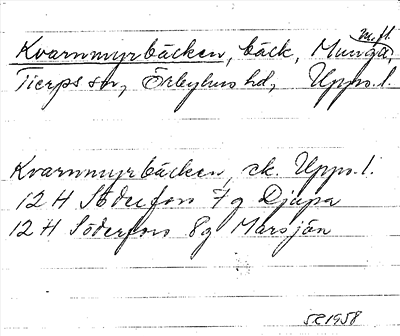 Kvarnmyrbäcken, bäck, Munga, m.fl.
Tierps sn, Örbyhus hd, Upps. l.
Kvarnmyrbäcken ek. Upps. l.
12 H Söderfors 7g Djupa
12 H Söderfors 8g Marsjön
521958